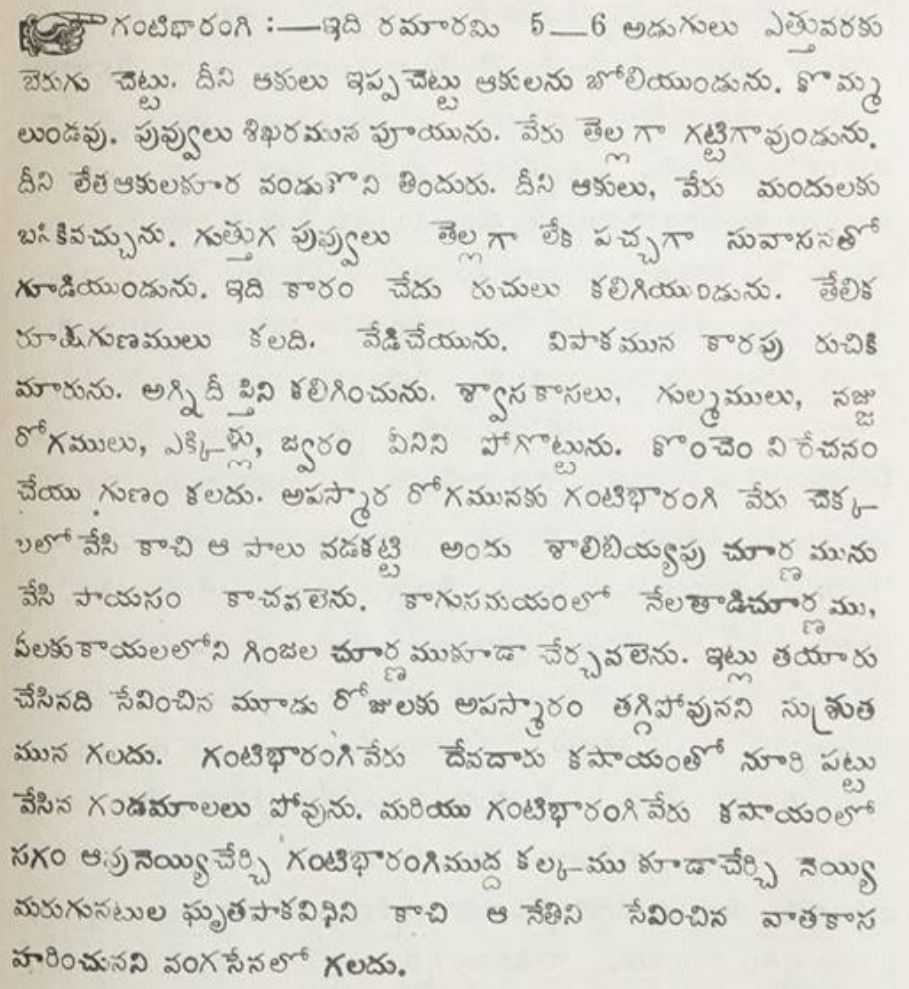 గంటిభారంగి :—ఇది రమారమి 5—6 అడుగులు ఎత్తువరకు
బెరుగు చెట్టు. దీని ఆకులు ఇప్పచెట్టు ఆకులను బోలియుండును. కొమ్మ
లుండవు. పువ్వులు శిఖరమున పూయును. వేరు తెల్లగా గట్టిగావుండును.
దీని లేతఆకులకూర వండుకొని తిందురు. దీని ఆకులు, వేరు మందులకు
బనికివచ్చును. గుత్తుగ పువ్వులు తెల్లగా లేక పచ్చగా సువాసనతో
గూడియుండును. ఇది కారం చేదు రుచులు కలిగియుండును. తేలిక
రూక్షగుణములు కలది. వేడిచేయును. విపాకమున కారపు రుచికి
మారును. అగ్నిదీప్తిని కలిగించును. శ్వాసకాసలు, గుల్మములు, నజ్జు
రోగములు, ఎక్కిళ్లు, జ్వరం వీనిని పోగొట్టును. కొంచెం విరేచనం
చేయు గుణం కలదు. అపస్మార రోగమునకు గంటిభారంగి వేరు చెక్క
లలో వేసి కాచి ఆ పాలు వడకట్టి అందు శాలిబియ్యపు చూర్ణమును
వేసి పాయసం కాచవలెను. కాగుసమయంలో నేలతాడిచూర్ణము,
ఏలకుకాయలలోని గింజల చూర్ణముకూడా చేర్చవలెను. ఇట్లు తయారు
చేసినది సేవించిన మూడు రోజులకు అపస్మారం తగ్గిపోవునని సుశ్రుత
మున గలదు. గంటిభారంగివేరు దేవదారు కషాయంతో నూరి పట్టు
వేసిన గండమాలలు పోవును. మరియు గంటిభారంగివేరు కషాయంలో
సగం ఆవునెయ్యిచేర్చి గంటిభారంగిముద్ద కల్కము కూడాచేర్చి నెయ్యి
మరుగునటుల ఘృతపాకవిధిని కాచి ఆ నేతిని సేవించిన వాతకాస
హరించునని వంగసేనలో గలదు.